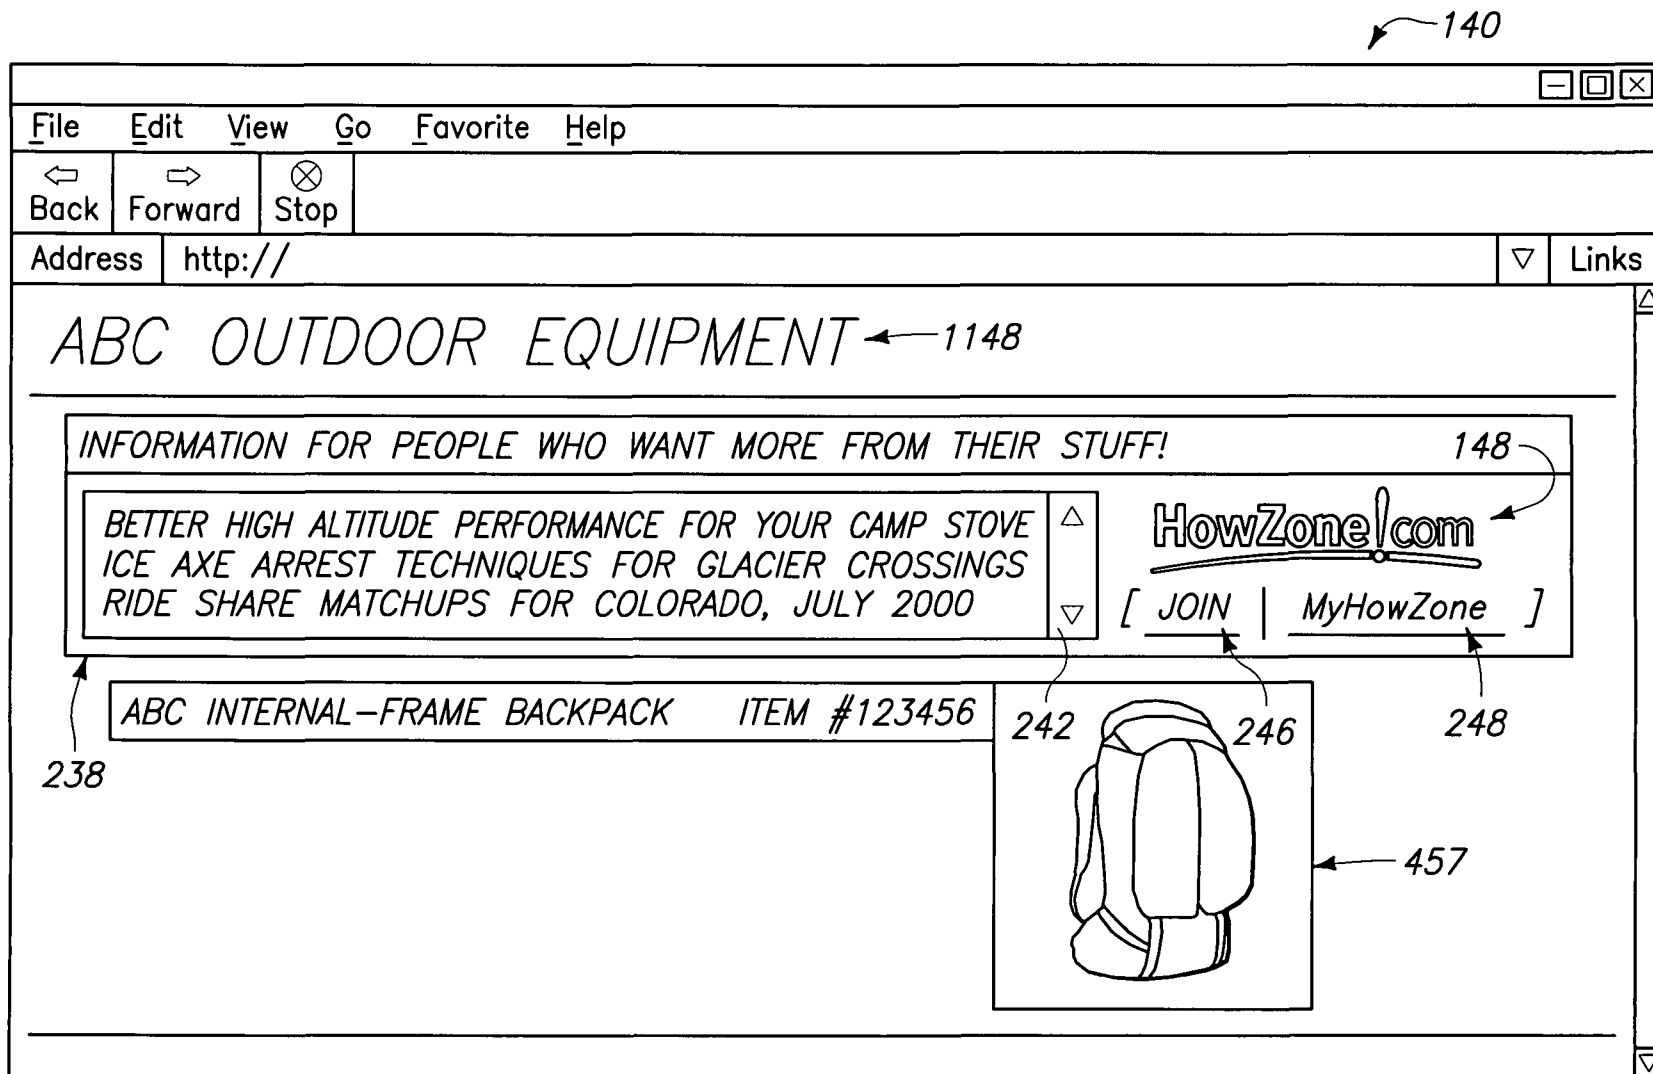 140
File Edit View Go Favorite Help
Back Forward Stop
Address http:// Links
ABC OUTDOOR EQUIPMENT 1148
INFORMATION FOR PEOPLE WHO WANT MORE FROM THEIR STUFF! 148
BETTER HIGH ALTITUDE PERFORMANCE FOR YOUR CAMP STOVE
ICE AXE ARREST TECHNIQUES FOR GLACIER CROSSINGS
RIDE SHARE MATCHUPS FOR COLORADO, JULY 2000
HowZone!com
[ JOIN | MyHowZone ]
ABC INTERNAL-FRAME BACKPACK ITEM #123456
242 246 248
238
457